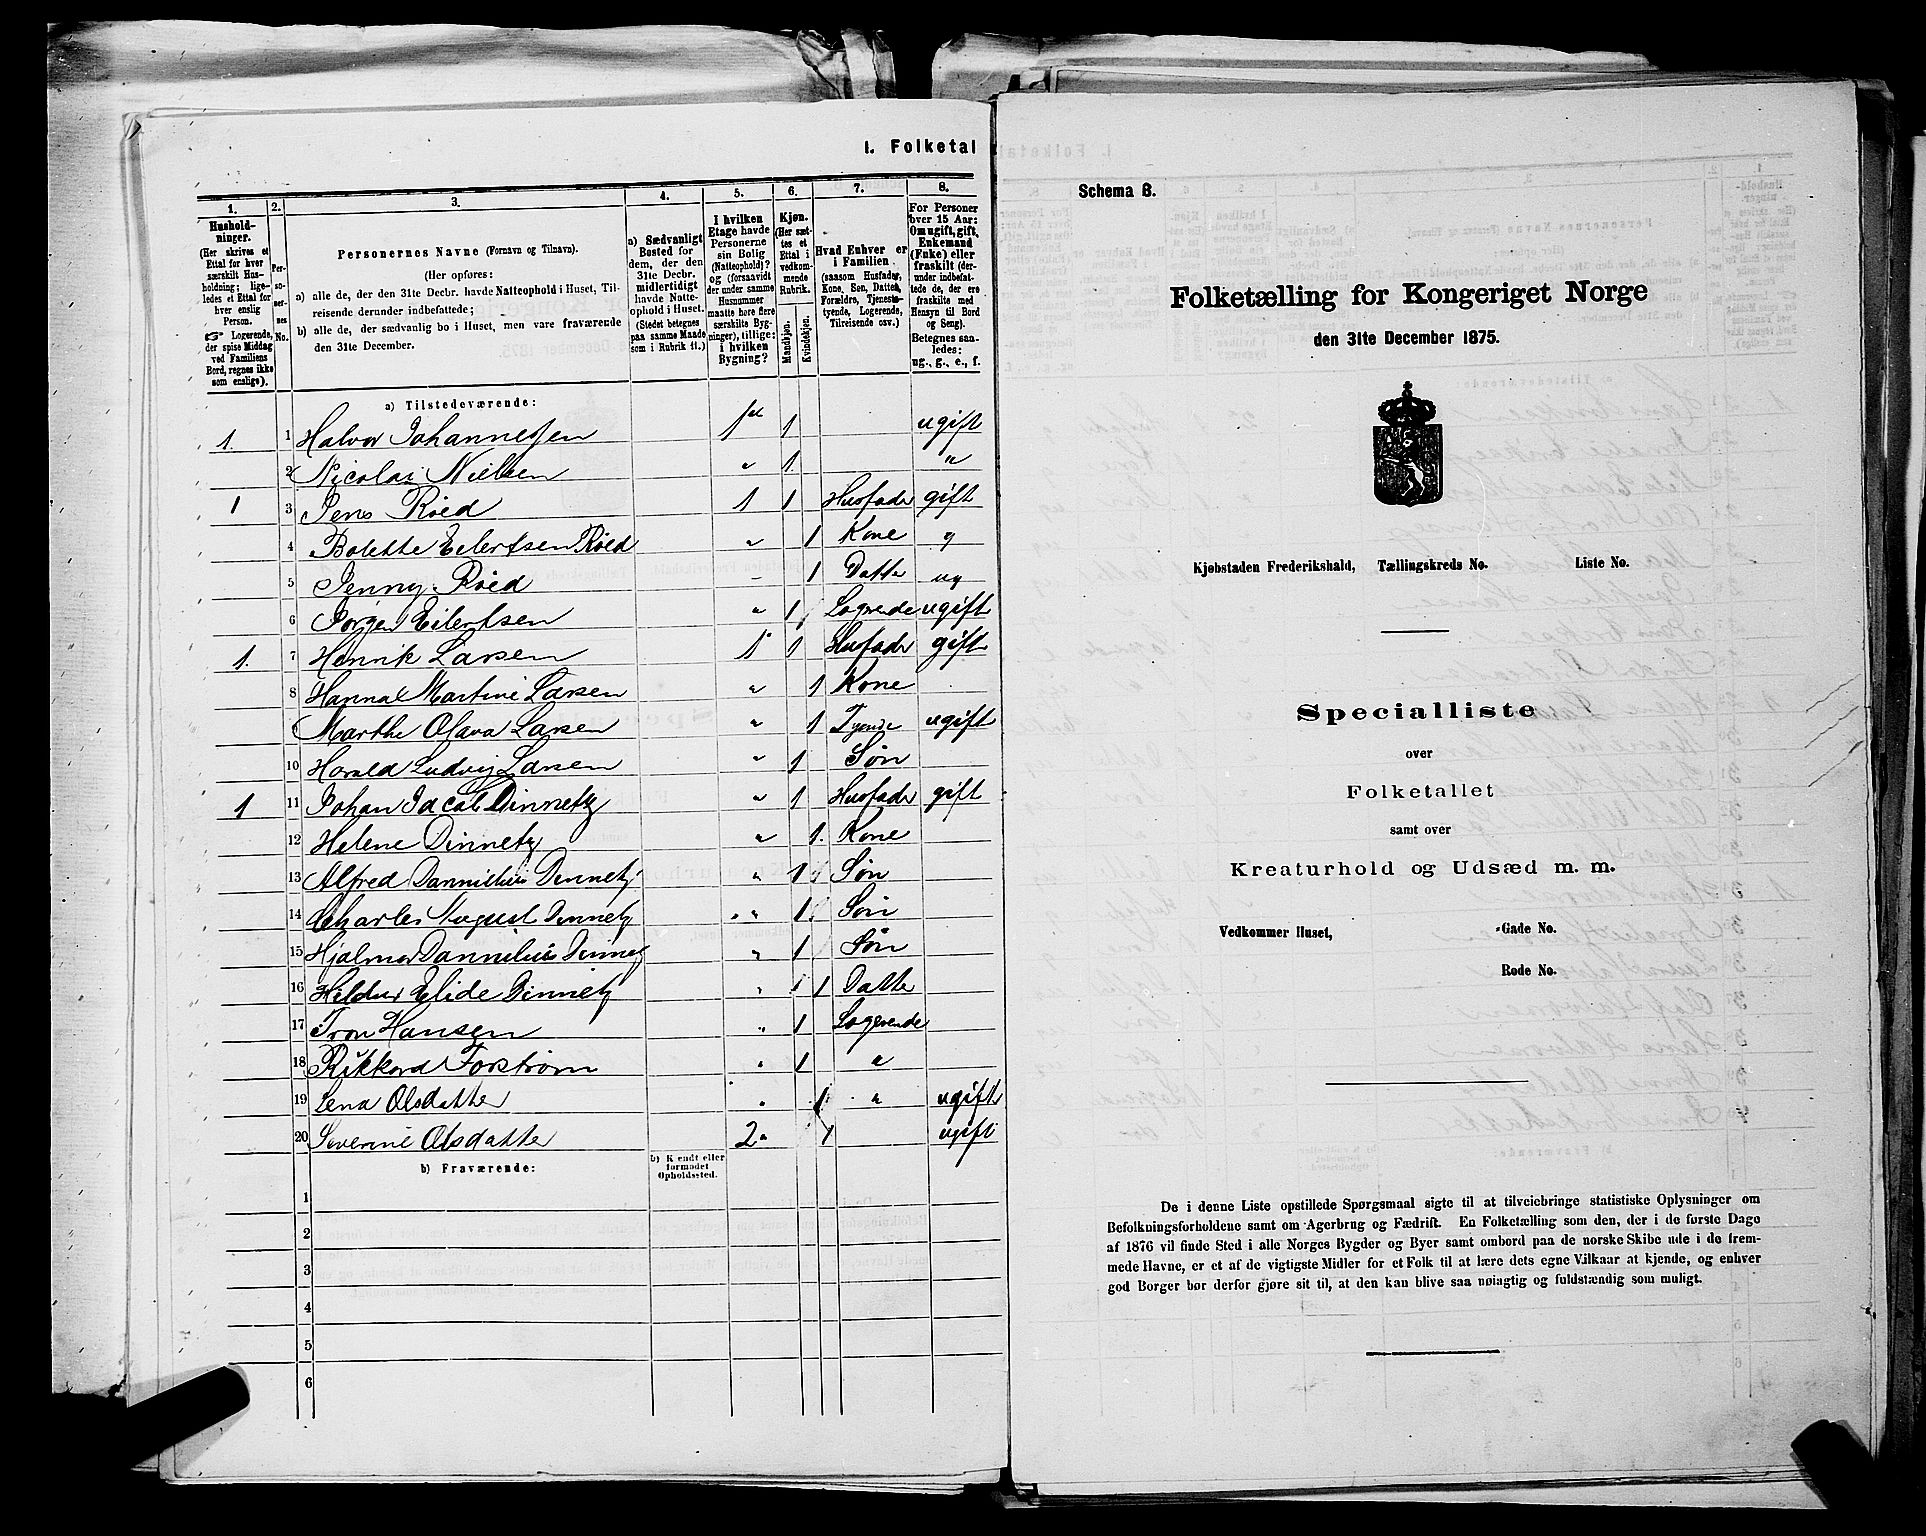 I. Folketal
1.
2.
3.
4.
5.
6.
7.
8.
Hushold-
ninger.
(Her skrives et
Ettal for hver
særskilt Hus-
holdning; lige-
ledes et Ettal for
hver enslig
Person.
☞ Logerende,
der spise Middag
ved Familiens
Bord, regnes ikke
som enslige).
Per-
so-
ner-
nes
No.
Personernes Navne (Fornavn og Tilnavn).
(Her opføres:
a) alle de, der den 31te Decbr. havde Natteophold i Huset, Til-
reisende derunder indbefattede;
b) alle de, der sædvanlig bo i Huset, men vare fraværende
den 31te December.
a) Sædvanligt
Bosted for
dem, der den
31te Decbr.
midlertidigt
havde Natte-
ophold i Huset.
(Stedet betegnes
paa samme Maade
som i Rubrik 11.)
I hvilken
Etage havde
Personerne
sin Bolig
(Natteophold)?
og (forsaavidt
der under samme
Husnummer
maatte høre flere
særskilte Byg-
ninger), tillige:
i hvilken
Bygning?
Kjøn.
(Her sæt-
tes et
Ettal i
vedkom-
mende
Rubrik.)
Mandkjøn.
Kvindekjøn.
Hvad Enhver er
i Familien
(saasom Husfader,
Kone, Søn, Datter,
Forældre, Tjeneste-
tyende, Logerende,
Tilreisende osv.)
For Personer
over 15 Aar:
Om ugift, gift,
Enkemand
(Enke) eller
fraskilt (der-
under indbefat-
tede de, der ere
fraskilte med
Hensyn til Bord
og Seng).
Betegnes saa-
ledes:
ug., g., e., f.
a) Tilstedeværende:
1. 1 Halvor Johannessen 1 1 ugift
2 Nicolai Nielsen " 1 "
1 3 Jens Röed 1 1 Husfader gift
4 Bolette Eilertsen Röed " 1 Kone g
5 Jenny Röed – 1 Datter ug
6 Jørgen Eilertsen " 1 Logrende ugift
1. 7 Henrik Larsen 1 1 Husfader gift
8 Hannal Martine Larsen " 1 Kone
Marthe Olava Larsen " 1 Tyende ugift
10 Harald Ludvig Larsen " 1 Søn
1 11 Johan Jacob Dinnetz " 1 Husfader gift
12 Helene Dinnetz " 1. Kone
13 Alfred Dannilius Dinnetz " 1 Søn
14 Charles August Dinnetz " 1 Søn
15 Hjalmar Dannilius Dinnetz " 1 Søn
16 Hildur Elide Dinnetz " 1 Datter
17 Tron Hansen " 1 Logerende
18 Rikkard Forstrøm " 1 "
19 Lena Olsdatter " 1 " ugift
20 Severine Olsdatter 2 1 ugift
b) Fraværende:
b) Kjendt eller
formodet
Opholdssted.
1
2
3
4
5
6
Schema B.
Folketælling for Kongeriget Norge
den 31te December 1875.
Kjøbstaden Frederikshald, Tællingskreds No. Liste No.
Specialliste
over
Folketallet
samt over
Kreaturhold og Udsæd m. m.
Vedkommer Huset, Gade No.
Rode No.
De i denne Liste opstillede Spørgsmaal sigte til at tilveiebringe statistiske Oplysninger om
Befolkningsforholdene samt om Agerbrug og Fædrift. En Folketælling som den, der i de første Dage
af 1876 vil finde Sted i alle Norges Bygder og Byer samt ombord paa de norske Skibe ude i de frem-
mede Havne, er et af de vigtigste Midler for et Folk til at lære dets egne Vilkaar at kjende, og enhver
god Borger bør derfor gjøre sit til, at den kan blive saa nøiagtig og fuldstændig som muligt.